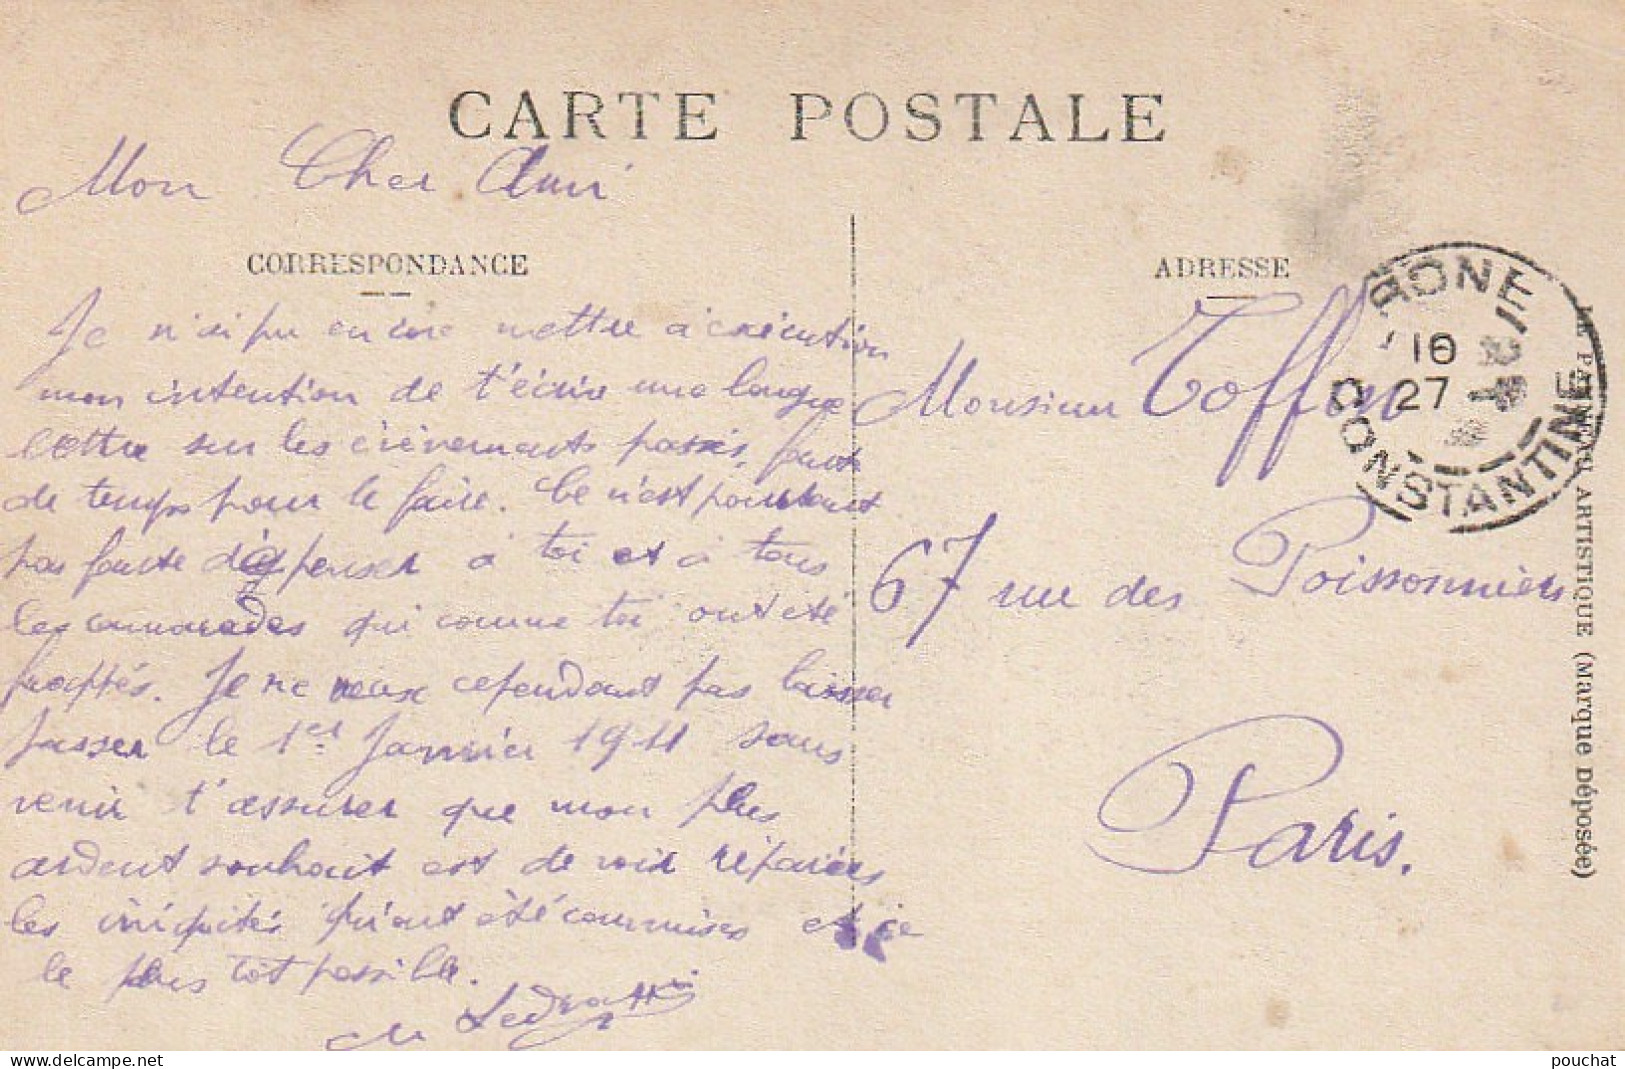 CARTE POSTALE
Mon Cher Ami
CORRESPONDANCE
Je n'ai pu encore mettre à exécution
mon intention de t'écrire une longue
lettre sur les évènements passés, faute
de temps pour le faire. Ce n'est pourtant
pas faute de penser à toi et à tous
les camarades qui comme toi ont été
frappés. Je ne veux cependant pas laisser
passer le 1er Janvier 1911 sans
venir t'assurer que mon plus
ardent souhait est de voir réparées
les iniquités qu'ont été commises et ce
le plus tôt possible.
ADRESSE
Monsieur Toffin
67 rue des Poissonniers
Paris.
BONE
16
27
CONSTANTINE
LE PANNEAU ARTISTIQUE (Marque Déposée)
www.delcampe.net
pouchat